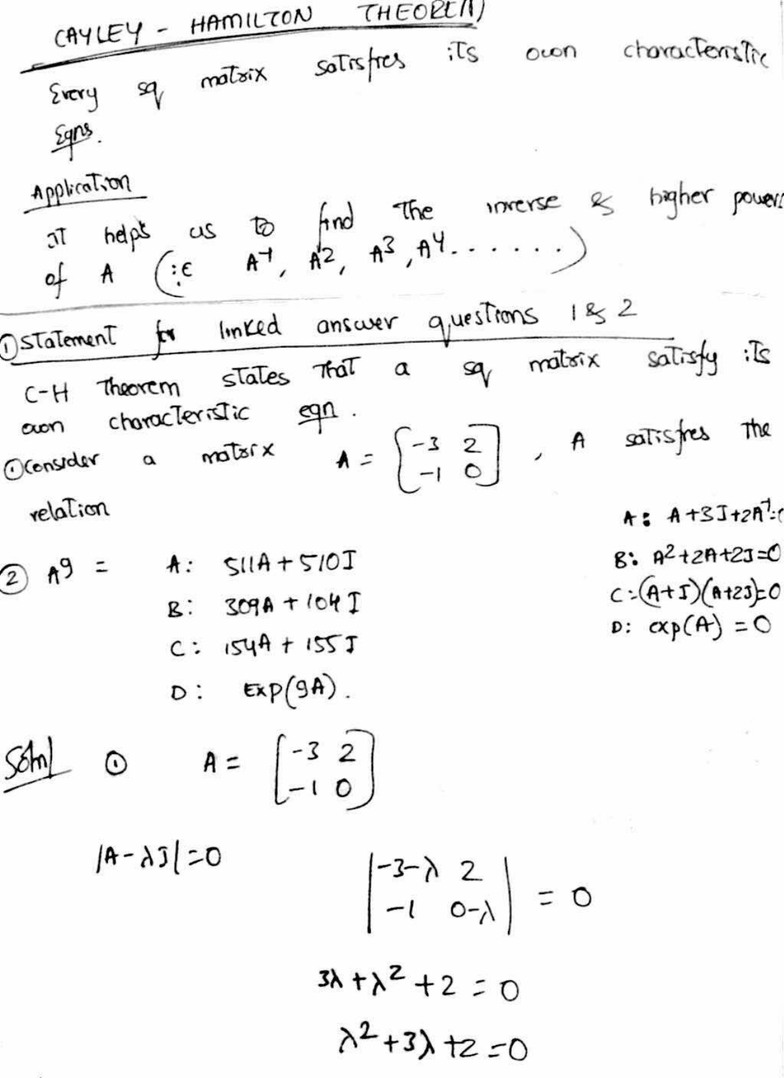 CAYLEY - HAMILTON THEOREM
Every sq matrix satisfies its own characteristic
Eqns.
Application
IT helps us to find the inverse & higher powers
of A (i.e A⁻¹, A², A³, A⁴.......)
① statement for linked answer questions 1 & 2
C-H Theorem states That a sq matrix satisfy its
own characteristic eqn.
① consider a matrix A = [-3 2
-1 0] , A satisfies the
relation
A: A+3I+2A⁻¹=0
B: A²+2A+2I=0
C: (A+I)(A+2I)=0
D: exp(A) = 0
② A⁹ = A: 511A + 510I
B: 309A + 104I
C: 154A + 155I
D: Exp(9A).
Soln ① A = [-3 2
-1 0]
|A-λI|=0
|-3-λ 2
-1 0-λ| = 0
3λ+λ²+2=0
λ²+3λ+2=0